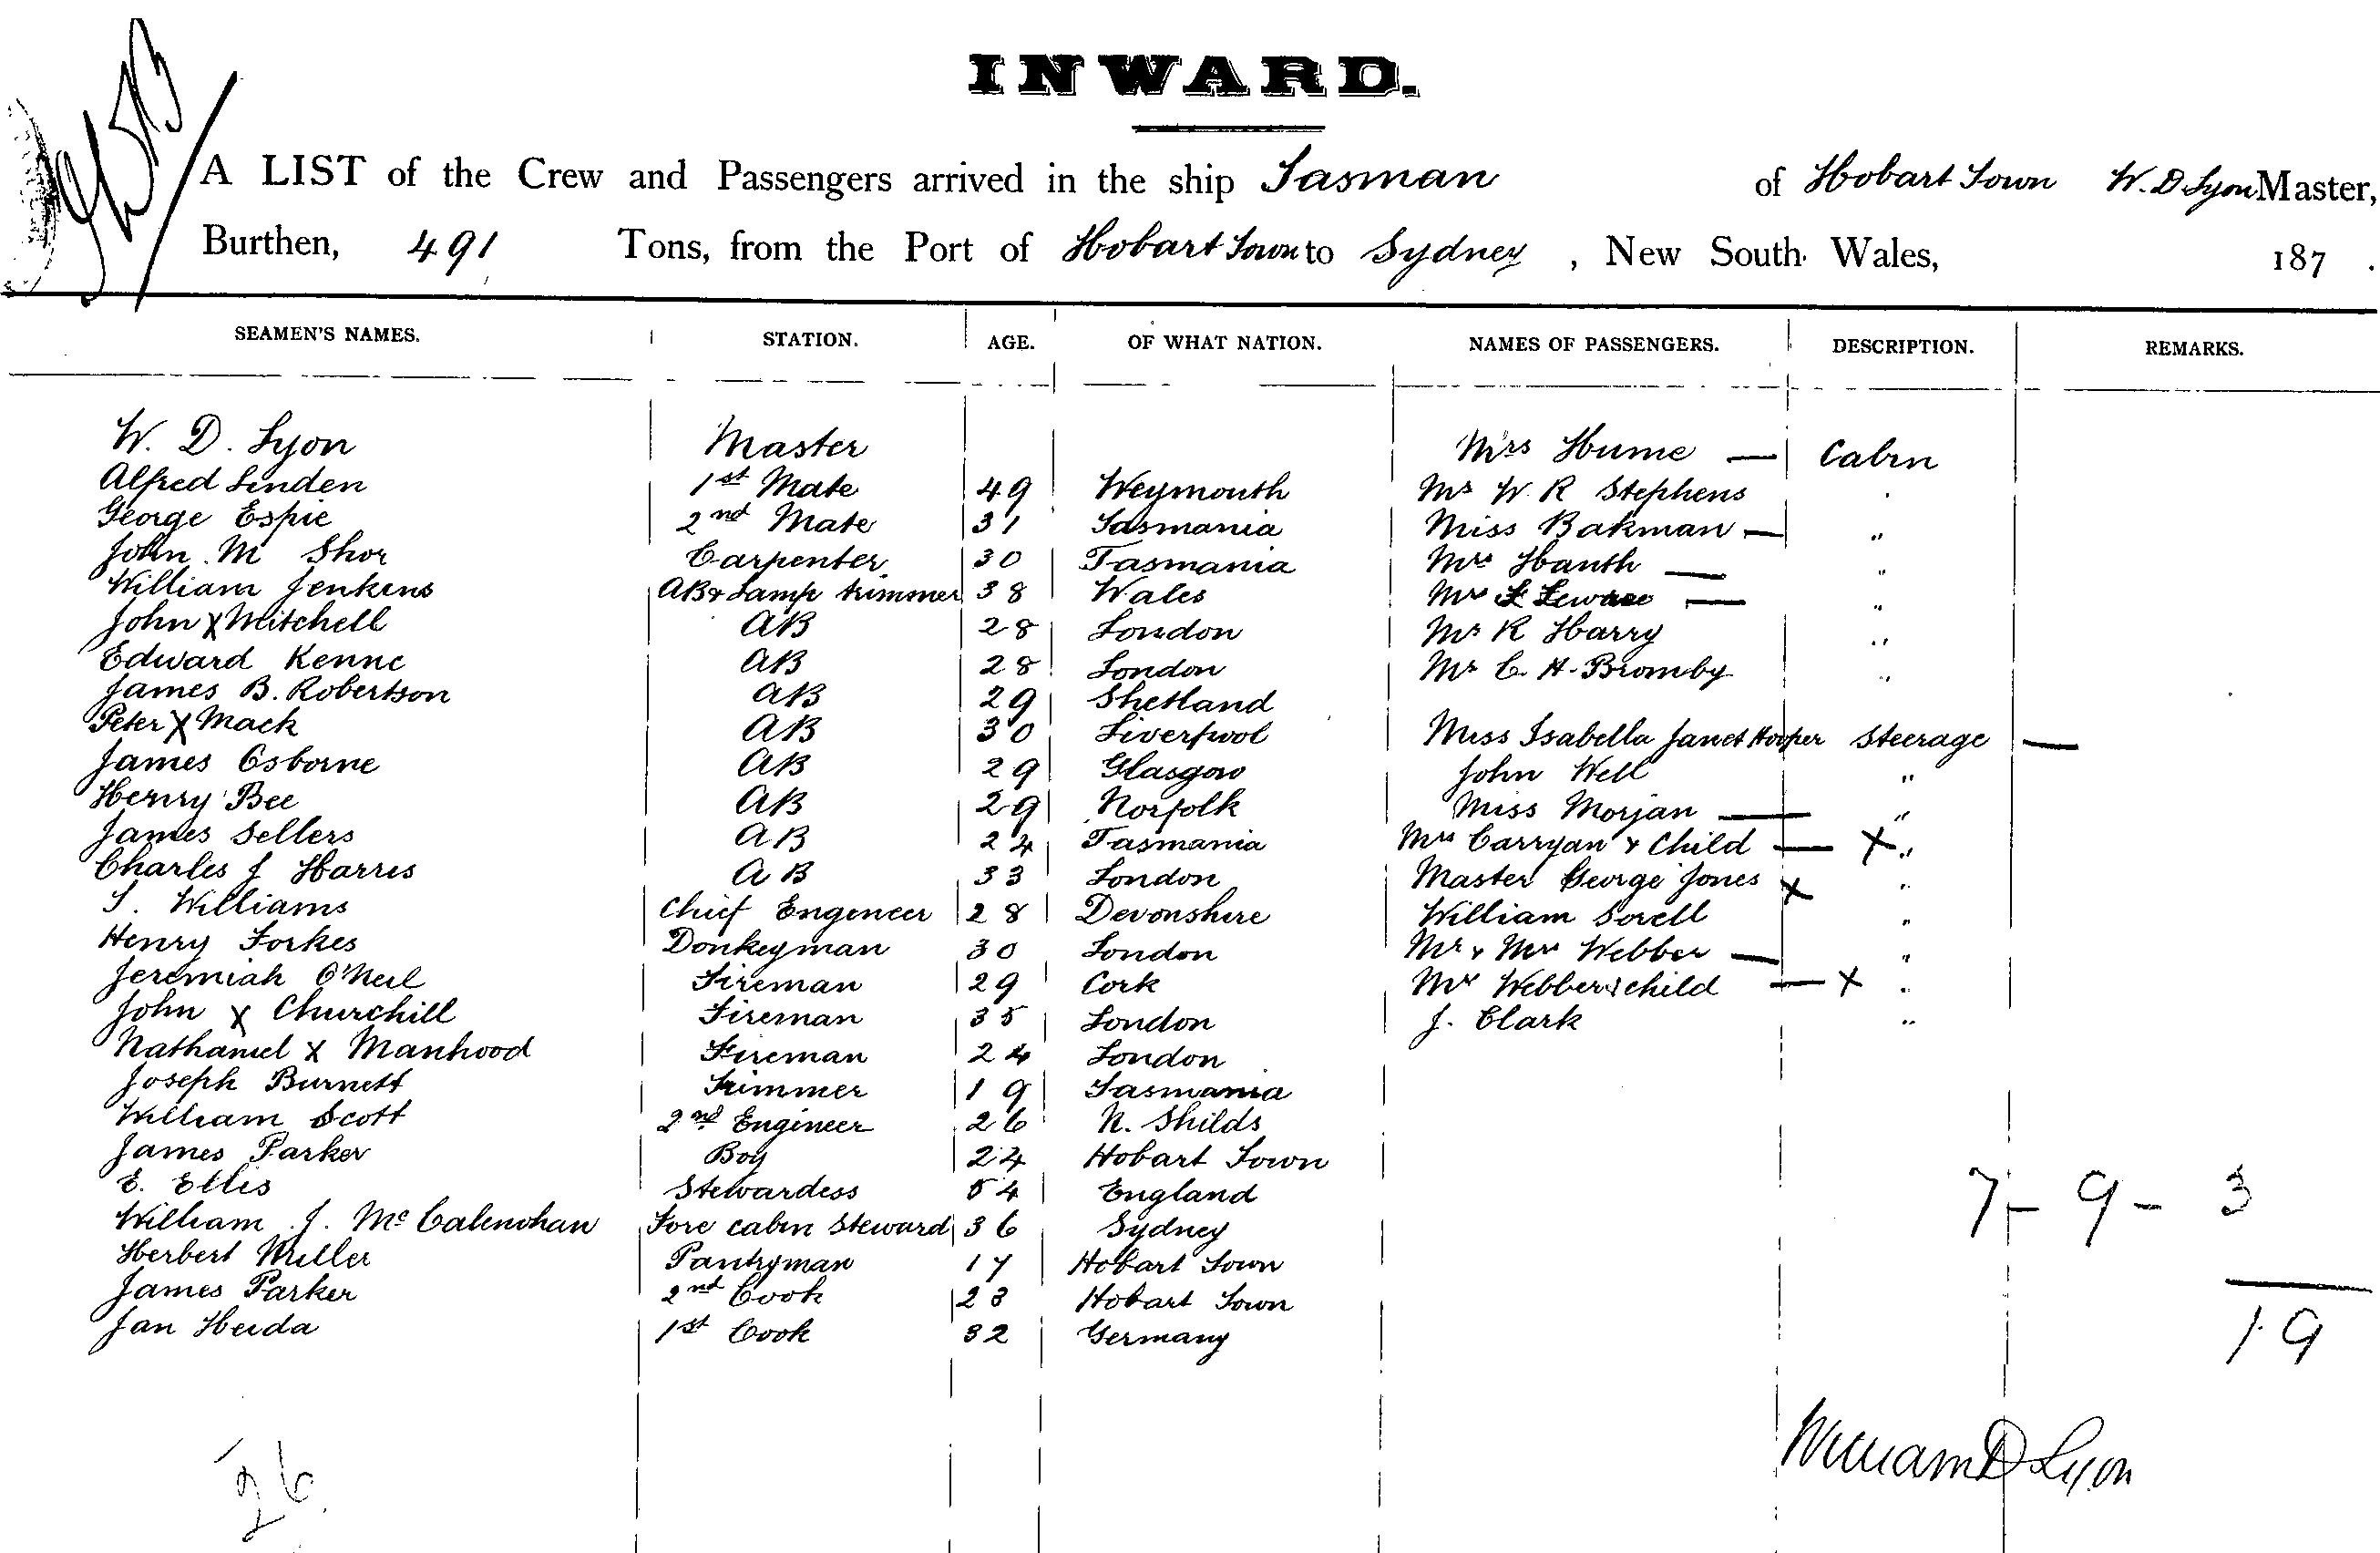 INWARD.
A LIST of the Crew and Passengers arrived in the ship Tasman of Hobart Town W. D Lyon Master,
Burthen, 491 Tons, from the Port of Hobart Town to Sydney, New South Wales, 187 .
SEAMEN'S NAMES. STATION. AGE. OF WHAT NATION. NAMES OF PASSENGERS. DESCRIPTION. REMARKS.
W. D. Lyon Master Mrs Hume — Cabin
Alfred Linden 1st Mate 49 Weymouth Mr W. R Stephens
George Espie 2nd Mate 31 Tasmania Miss Bakman — "
John M Shor Carpenter 30 Tasmania Mrs Hanth — "
William Jenkins AB & Lamp trimmer 38 Wales Mrs — "
John X Mitchell AB 28 London Mr R Harry "
Edward Kenne AB 28 London Mr C. H. Bromby "
James B. Robertson AB 29 Shetland
Peter X Mack AB 30 Liverpool Miss Isabella Janet Hooper Steerage —
James Osborne AB 29 Glasgow John Well "
Henry Bee AB 29 Norfolk Miss Morjan — "
James Sellers AB 24 Tasmania Mrs Carryan & Child — X "
Charles J Harris AB 33 London Master George Jones X "
T. Williams Chief Engineer 28 Devonshire William Sorell "
Henry Forkes Donkeyman 30 London Mr & Mrs Webber — "
Jeremiah O'Neil Fireman 29 Cork Mrs Webbers child — X "
John X Churchill Fireman 35 London J. Clark "
Nathaniel X Manhood Fireman 24 London
Joseph Burnett Trimmer 19 Tasmania
William Scott 2nd Engineer 26 N. Shilds
James Parker Boy 24 Hobart Town
E. Ellis Stewardess 54 England
William J. McCalenohan Fore cabin Steward 36 Sydney
Herbert Miller Pantryman 17 Hobart Town
James Parker 2nd Cook 23 Hobart Town
Jan Heida 1st Cook 32 Germany
7 - 9 - 3
19
William D Lyon
26